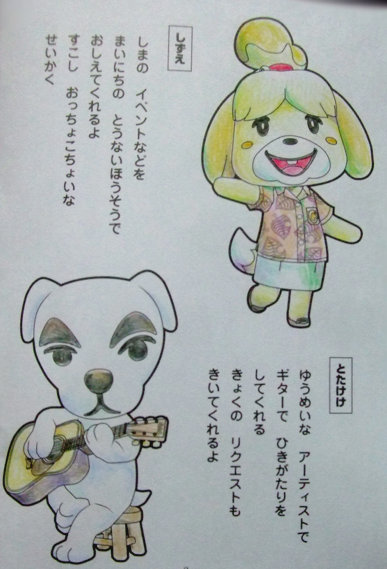 しずえ
しまの イベントなどを
まいにちの とうないほうそうで
おしえてくれるよ
すこし おっちょこちょいな
せいかく
とたけけ
ゆうめいな アーティストで
ギターで ひきがたりを
してくれる
きょくの リクエストも
きいてくれるよ